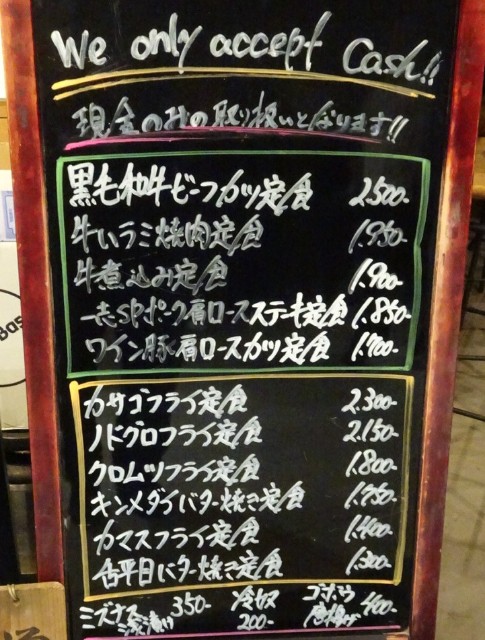 We only accept Cash!!
現金のみの取り扱いとなります!!
黒毛和牛ビーフカツ定食 2.500-
牛ハラミ焼肉定食 1.950-
牛煮込み定食 1.900-
壱SPポーク肩ロースステーキ定食 1.850-
ワイン豚肩ロースカツ定食 1.700-
カサゴフライ定食 2.300-
ノドグロフライ定食 2.150-
クロムツフライ定食 1.800-
キンメダイバター焼き定食 1.750-
カマスフライ定食 1.400-
舌平目バター焼き定食 1.300-
ミズナス浅漬け 350-
冷奴 200-
ゴボウ唐揚げ 400-